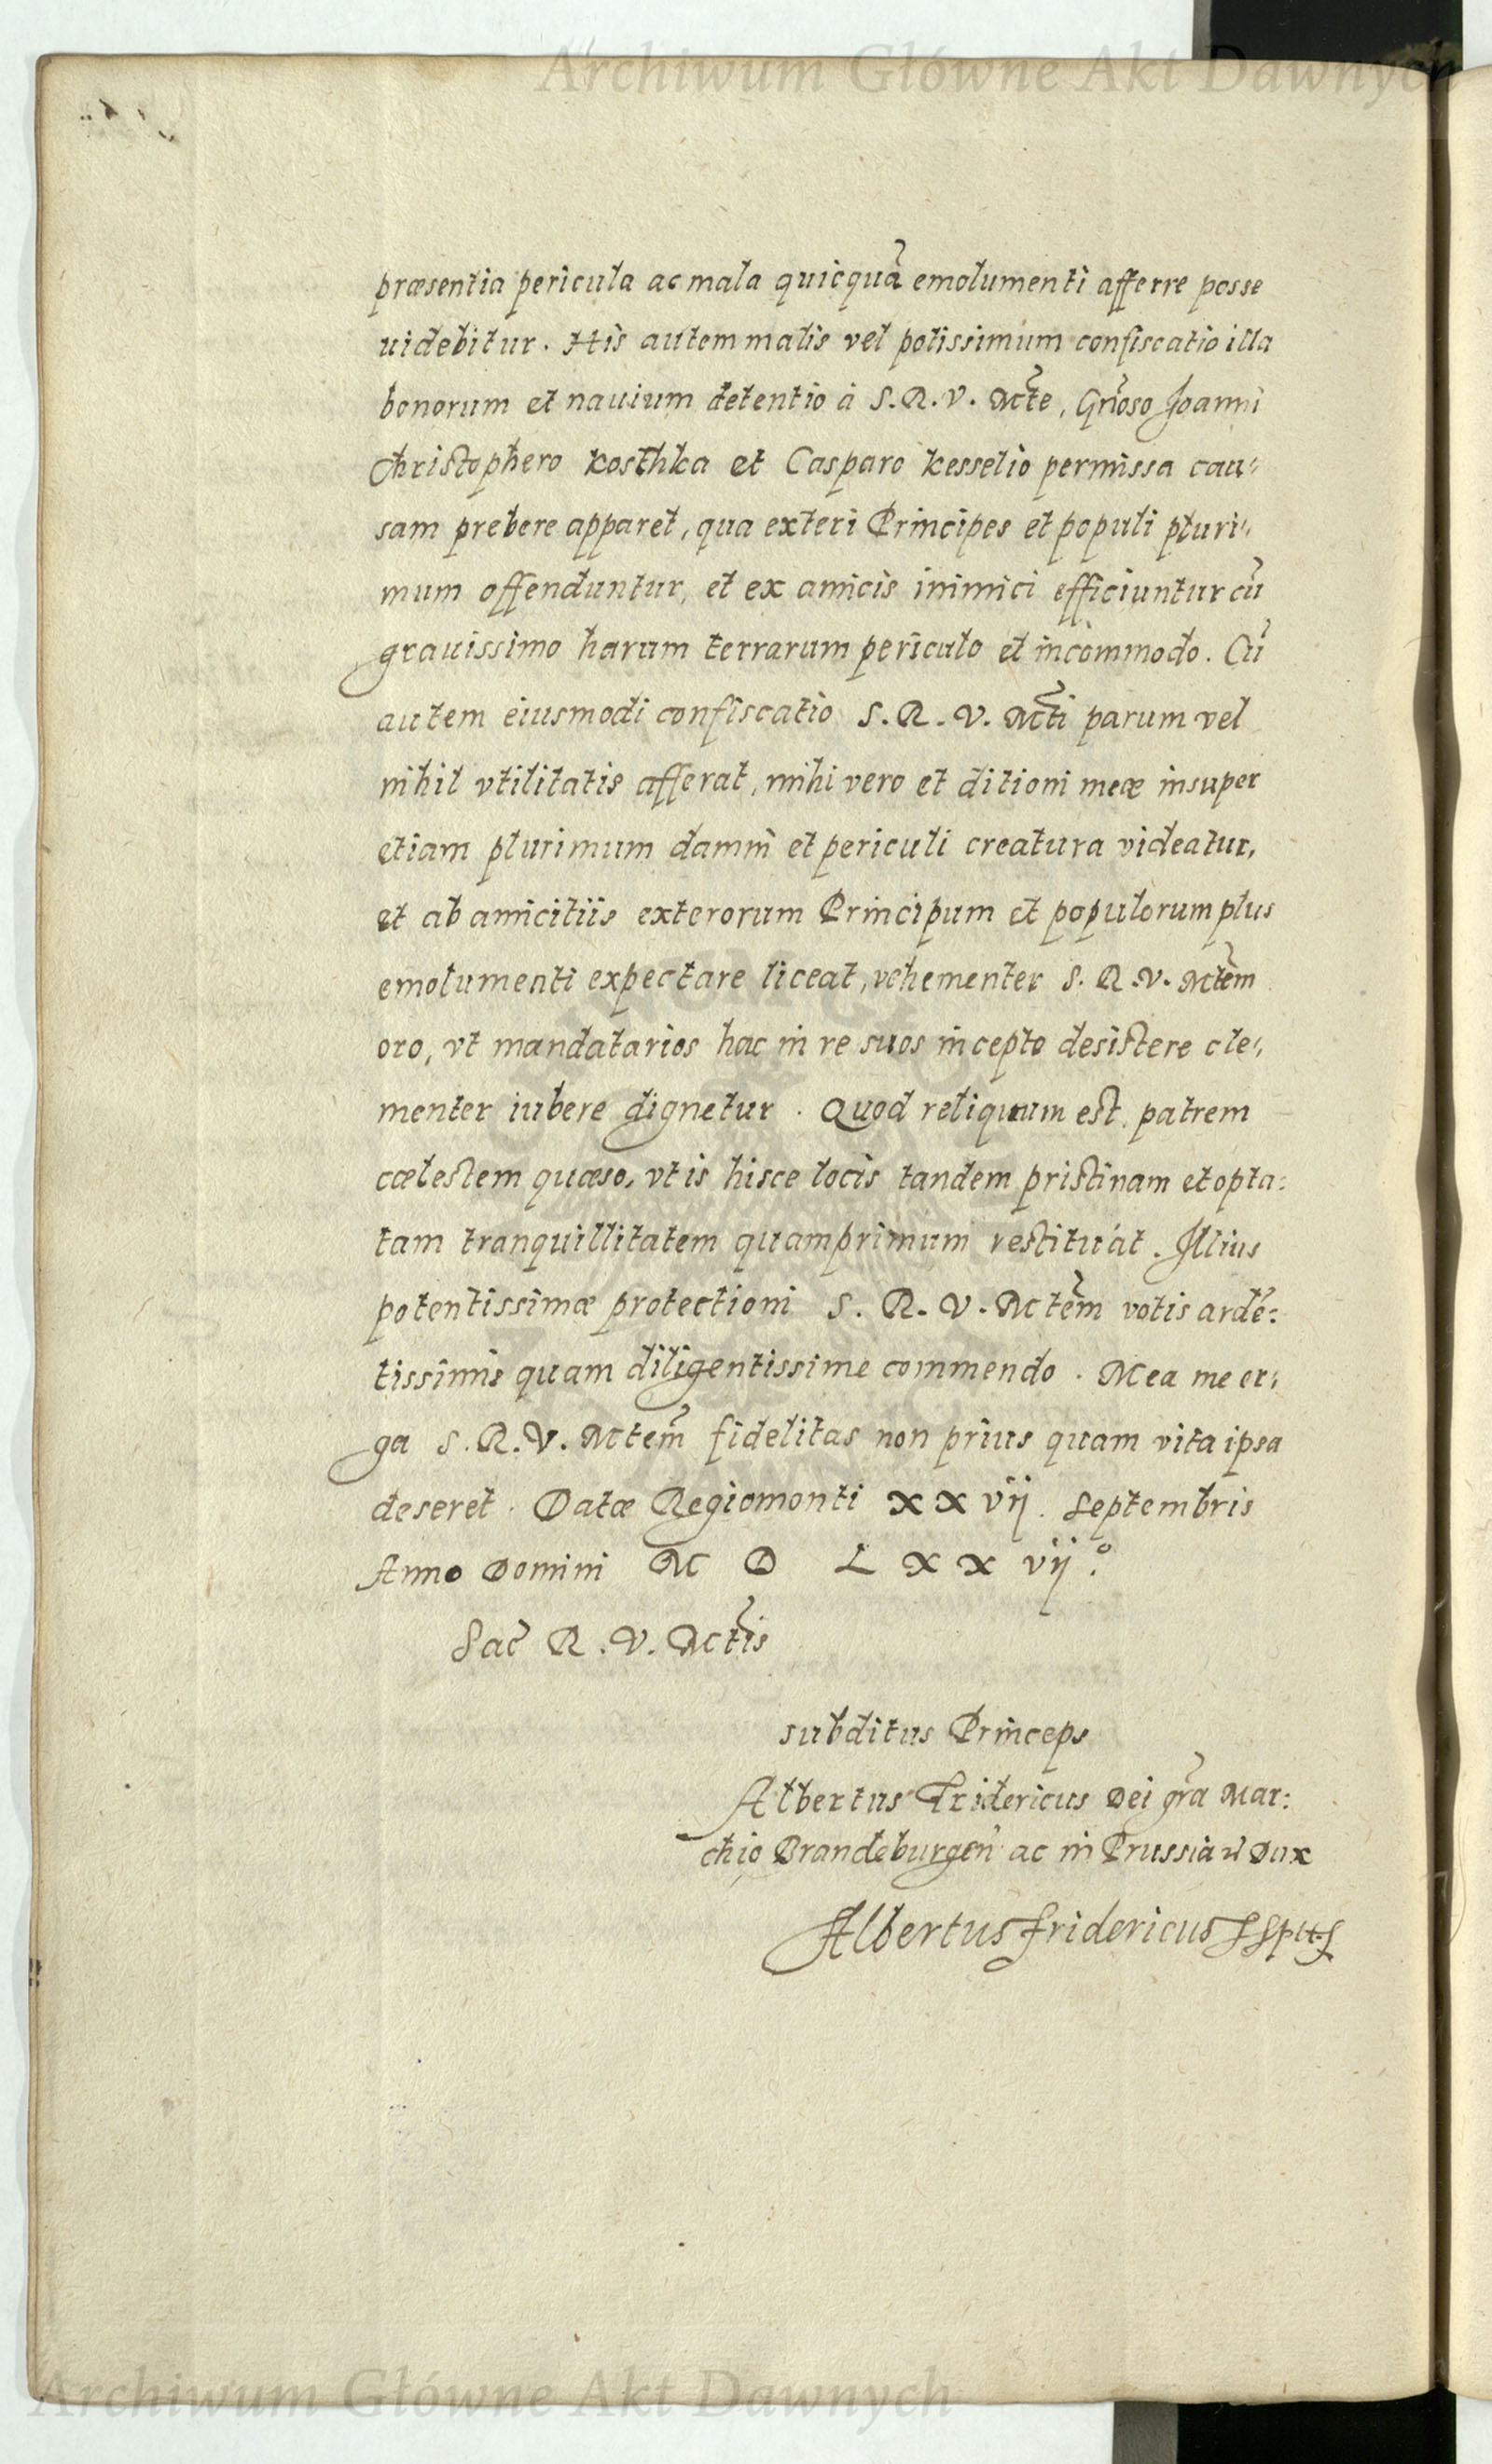 Archiwum Główne Akt Dawnych
præsentia pericula ac mala quicquã emolumenti afferre posse
uidebitur. His autem malis vel potissimum confiscatio illa
bonorum et nauium detentio à S. R. V. Mc̃te, Gñoso Joanni
Christophero Kosthka et Casparo Kesselio permissa cau„
sam prebere apparet, qua exteri Principes et populi pluri„
mum offenduntur, et ex amicis inimici efficiuntur cũ
grauissimo harum terrarum periculo et incommodo. Cũ
autem eiusmodi confiscatio S. R. V. Mc̃ti parum vel
nihil vtilitatis afferat, mihi vero et ditioni meæ insuper
etiam plurimum damni et periculi creatura videatur,
et ab amicitiis exterorum Principum et populorum plus
emolumenti expectare liceat, vehementer S. R. V. Mctẽm
oro, vt mandatarios hac in re suos incepto desistere cle„
menter iubere dignetur. Quod reliquum est, patrem
cœlestem quæso, vt is hisce locis tandem pristinam et opta:
tam tranquillitatem quamprimum restituat. Illius
potentissimæ protectioni S. R. V. Mctẽm votis ardẽ:
tissimis quam diligentissime commendo. Mea me er„
ga S. R. V. Mctem̃ fidelitas non prius quam vita ipsa
deseret. Datæ Regiomonti xxvij. Septembris
Anno Domini M D L x x vij.º
Sac̃ R. V. Mct̃is
subditus Princeps
Albertus Fridericus Dei grã Mar:
chio Brandeburgeñ ac in Prussia Dux
Albertus Fridericus
Archiwum Główne Akt Dawnych